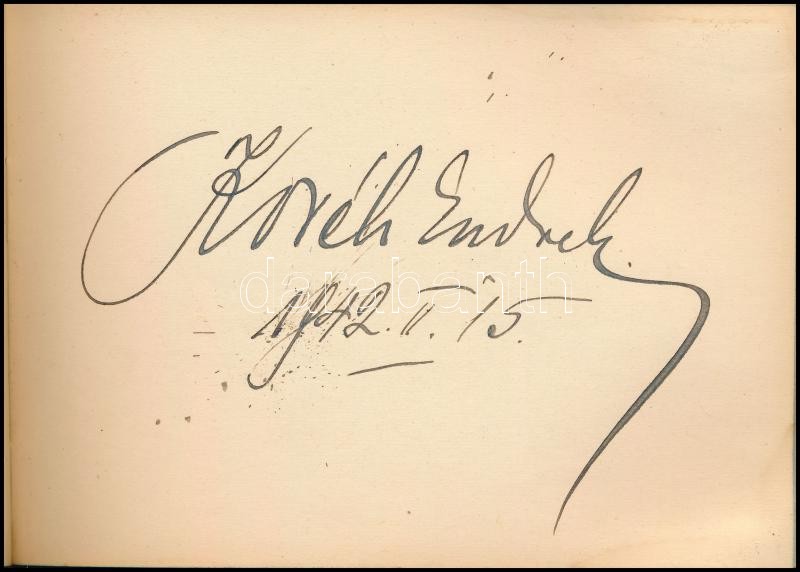 Koréh Endre
darabanth
1942. II. 15.